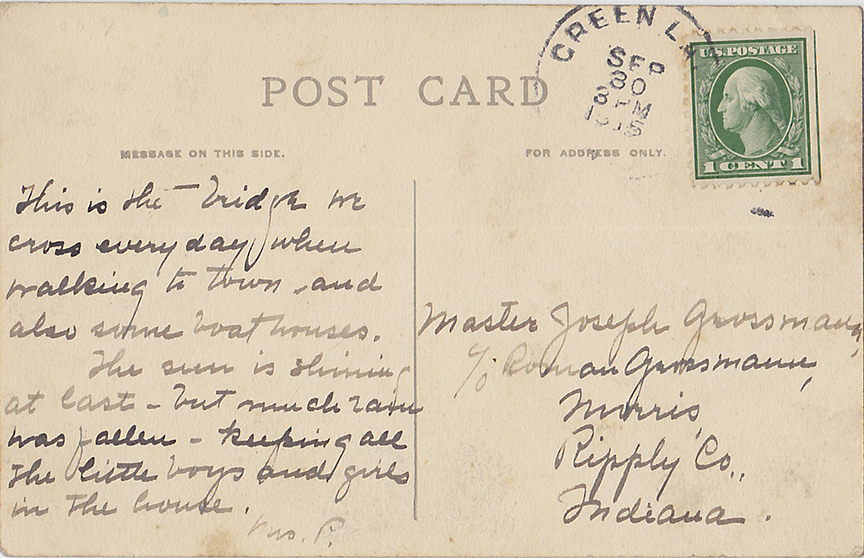 GREEN LA
SEP
30
8 PM
U.S. POSTAGE
1 CENT 1
POST CARD
MESSAGE ON THIS SIDE.
FOR ADDRESS ONLY.
This is the bridge we
cross every day when
walking to town, and
also some boat houses.
The sun is shining
at last - but much rain
was fallen - keeping all
the little boys and girls
in the house.
Mrs. P.
Master Joseph Grossmann,
c/o Roman Grossmann,
Morris,
Ripply Co.,
Indiana.